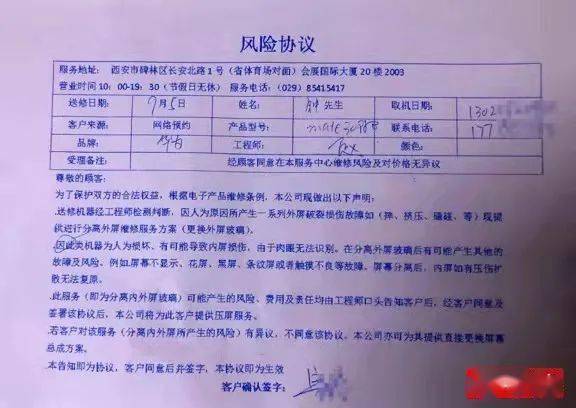 风险协议
服务地址： 西安市碑林区长安北路1号（省体育场对面）会展国际大厦20楼2003
营业时间10：00-19：30（节假日无休） 服务电话：（029）85415417
送修日期： 7月5日 姓名： 先生 取机日期： 1302
客户来源： 网络预约 产品型号： mate30 联系电话： 177
品牌： 华为 工程师： 颜色：
受理备注： 经顾客同意在本服务中心维修风险及对价格无异议
尊敬的顾客：
为了保护双方的合法权益，根据电子产品维修条例，本公司现做出以下声明：
.送修机器经工程师检测判断，因人为原因所产生一系列外屏破裂损伤故障如（摔、挤压、磕碰、等）现提
供进行分离外屏维修服务方案（更换外屏玻璃）。
.因此类机器为人为损坏、有可能导致内屏损伤，由于肉眼无法识别。在分离外屏玻璃后有可能产生其他的
故障及风险、例如.屏幕不显示、花屏、黑屏、条纹屏或者触摸不良等故障。屏幕分离后，内屏如有压伤扩
散无法复原。
.此服务（即为分离内外屏玻璃）可能产生的风险、费用及责任均由工程师口头告知客户后，经客户同意及
签署该协议后，本公司将为此客户提供压屏服务。
.若客户对该服务（分离内外屏所产生的风险）有异议，不同意该协议。本公司亦可为其提供直接更换屏幕
总成方案。
.本告知即为协议，客户同意后并签字，本协议即为生效
客户确认签字：